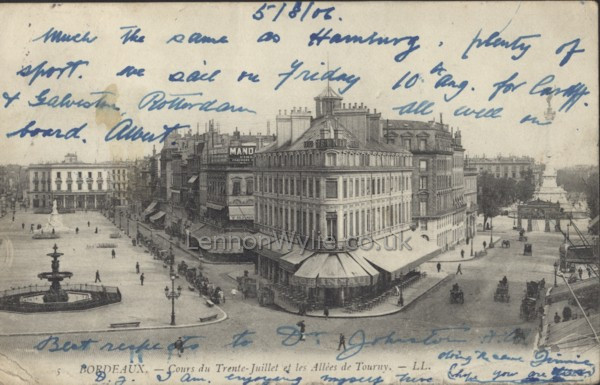 5/8/06.
Much the same as Hamburg, plenty of
sport. we sail on Friday 10th Aug. for Cardiff
& Galveston Rotterdam all well on
board. Albert
MANO
LennonWylie.co.uk
Best respects to Dr Johnston
5 BORDEAUX. — Cours du Trente-Juillet et les Allées de Tourny. — LL.
I am enjoying myself here
doing the same
you are